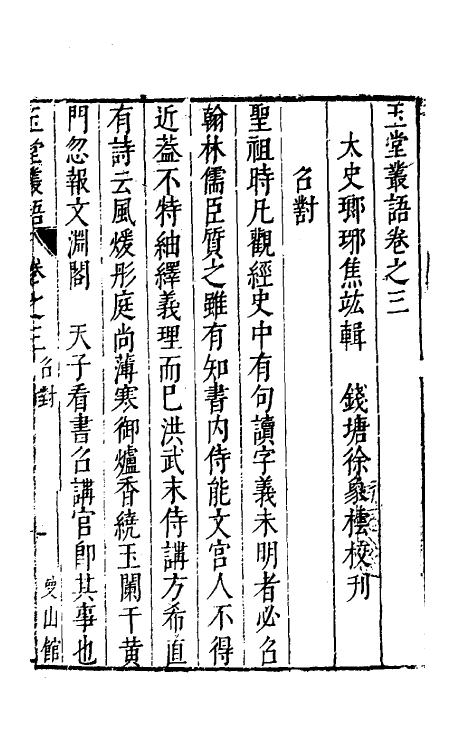 玉堂叢語卷之三
太史瑯琊焦竑輯　錢塘徐象橒校刊
召對
聖祖時凡觀經史中有句讀字義未明者必召
翰林儒臣質之雖有知書內侍能文宮人不得
近葢不特紬繹義理而已洪武末侍講方希直
有詩云風煖彤庭尚薄寒御爐香繞玉闌干黄
門忽報文淵閣　天子看書召講官卽其事也
玉堂叢語　卷之三　召對　一　曼山館